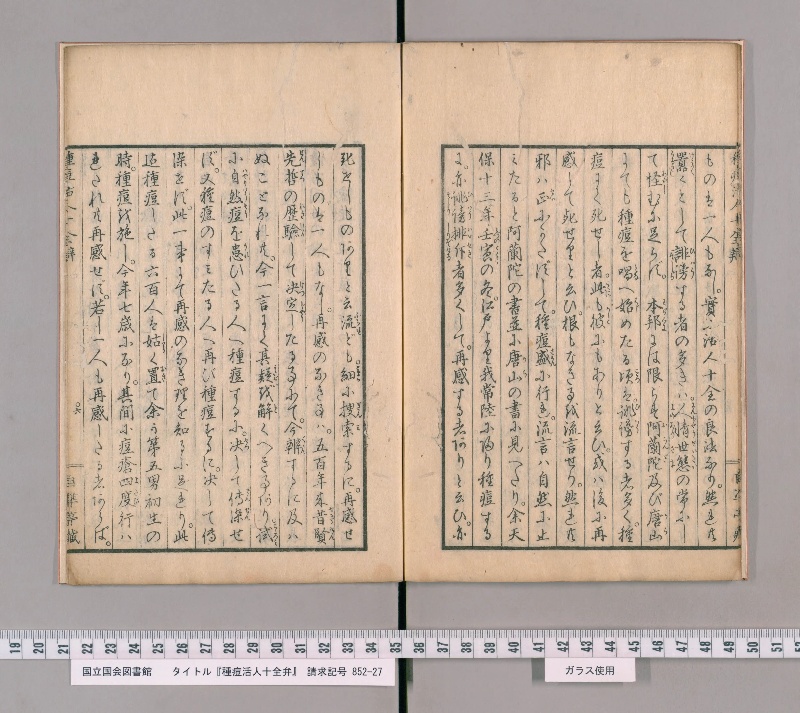 ものは一人もなし。實に活人十全の良法なり。然れども
囂々として誹謗する者の多きハ。人情世態の常にし
て怪むに足らず。本邦には限らず阿蘭陀及び唐山
にても種痘を唱へ始めたる頃を誹謗する者多く。種
痘にて死せし者。此も彼にもありと云ひ。或ハ後に再
感して死せりと云ひ。根もなきを流言せり。然れども
邪ハ正にかたずして。種痘盛に行る。流言ハ自然に止
みたると阿蘭陀の書並に唐山の書に見へたり。余天
保十三年壬寅の冬江戸より我常陸に帰り種痘する
に。亦誹謗排斥者多くして。再感する者ありと云ひ。亦
死せしものありと云流ども細に捜索するに。再感せ
しものは一人もなし。再感のなきをハ。五百年来昔賢
先哲の歴驗して決定したる事にて。今辨ずるに及ハ
ぬことなれども。今一言にて其疑を解くへきあり。試
に自然痘を患ひたる人へ種痘するに。決して伝染せ
ず。又種痘のすミたる人へ再び種痘するに。決して傳
染せず。此一事にて再感のなき理を知るに足れり。此
迄種痘したる六百人を姑く置て余が第五男初生の
時。種痘を施し。今年七歳になり。其間に痘瘡四度行ハ
れされども再感せず。若し一人も再感したる者あらば。
国立国会図書館 タイトル『種痘活人十全弁』 請求記号 852-27
ガラス使用
19 20 21 22 23 24 25 26 27 28 29 30 31 32 33 34 35 36 37 38 39 40 41 42 43 44 45 46 47 48 49 50 51 52